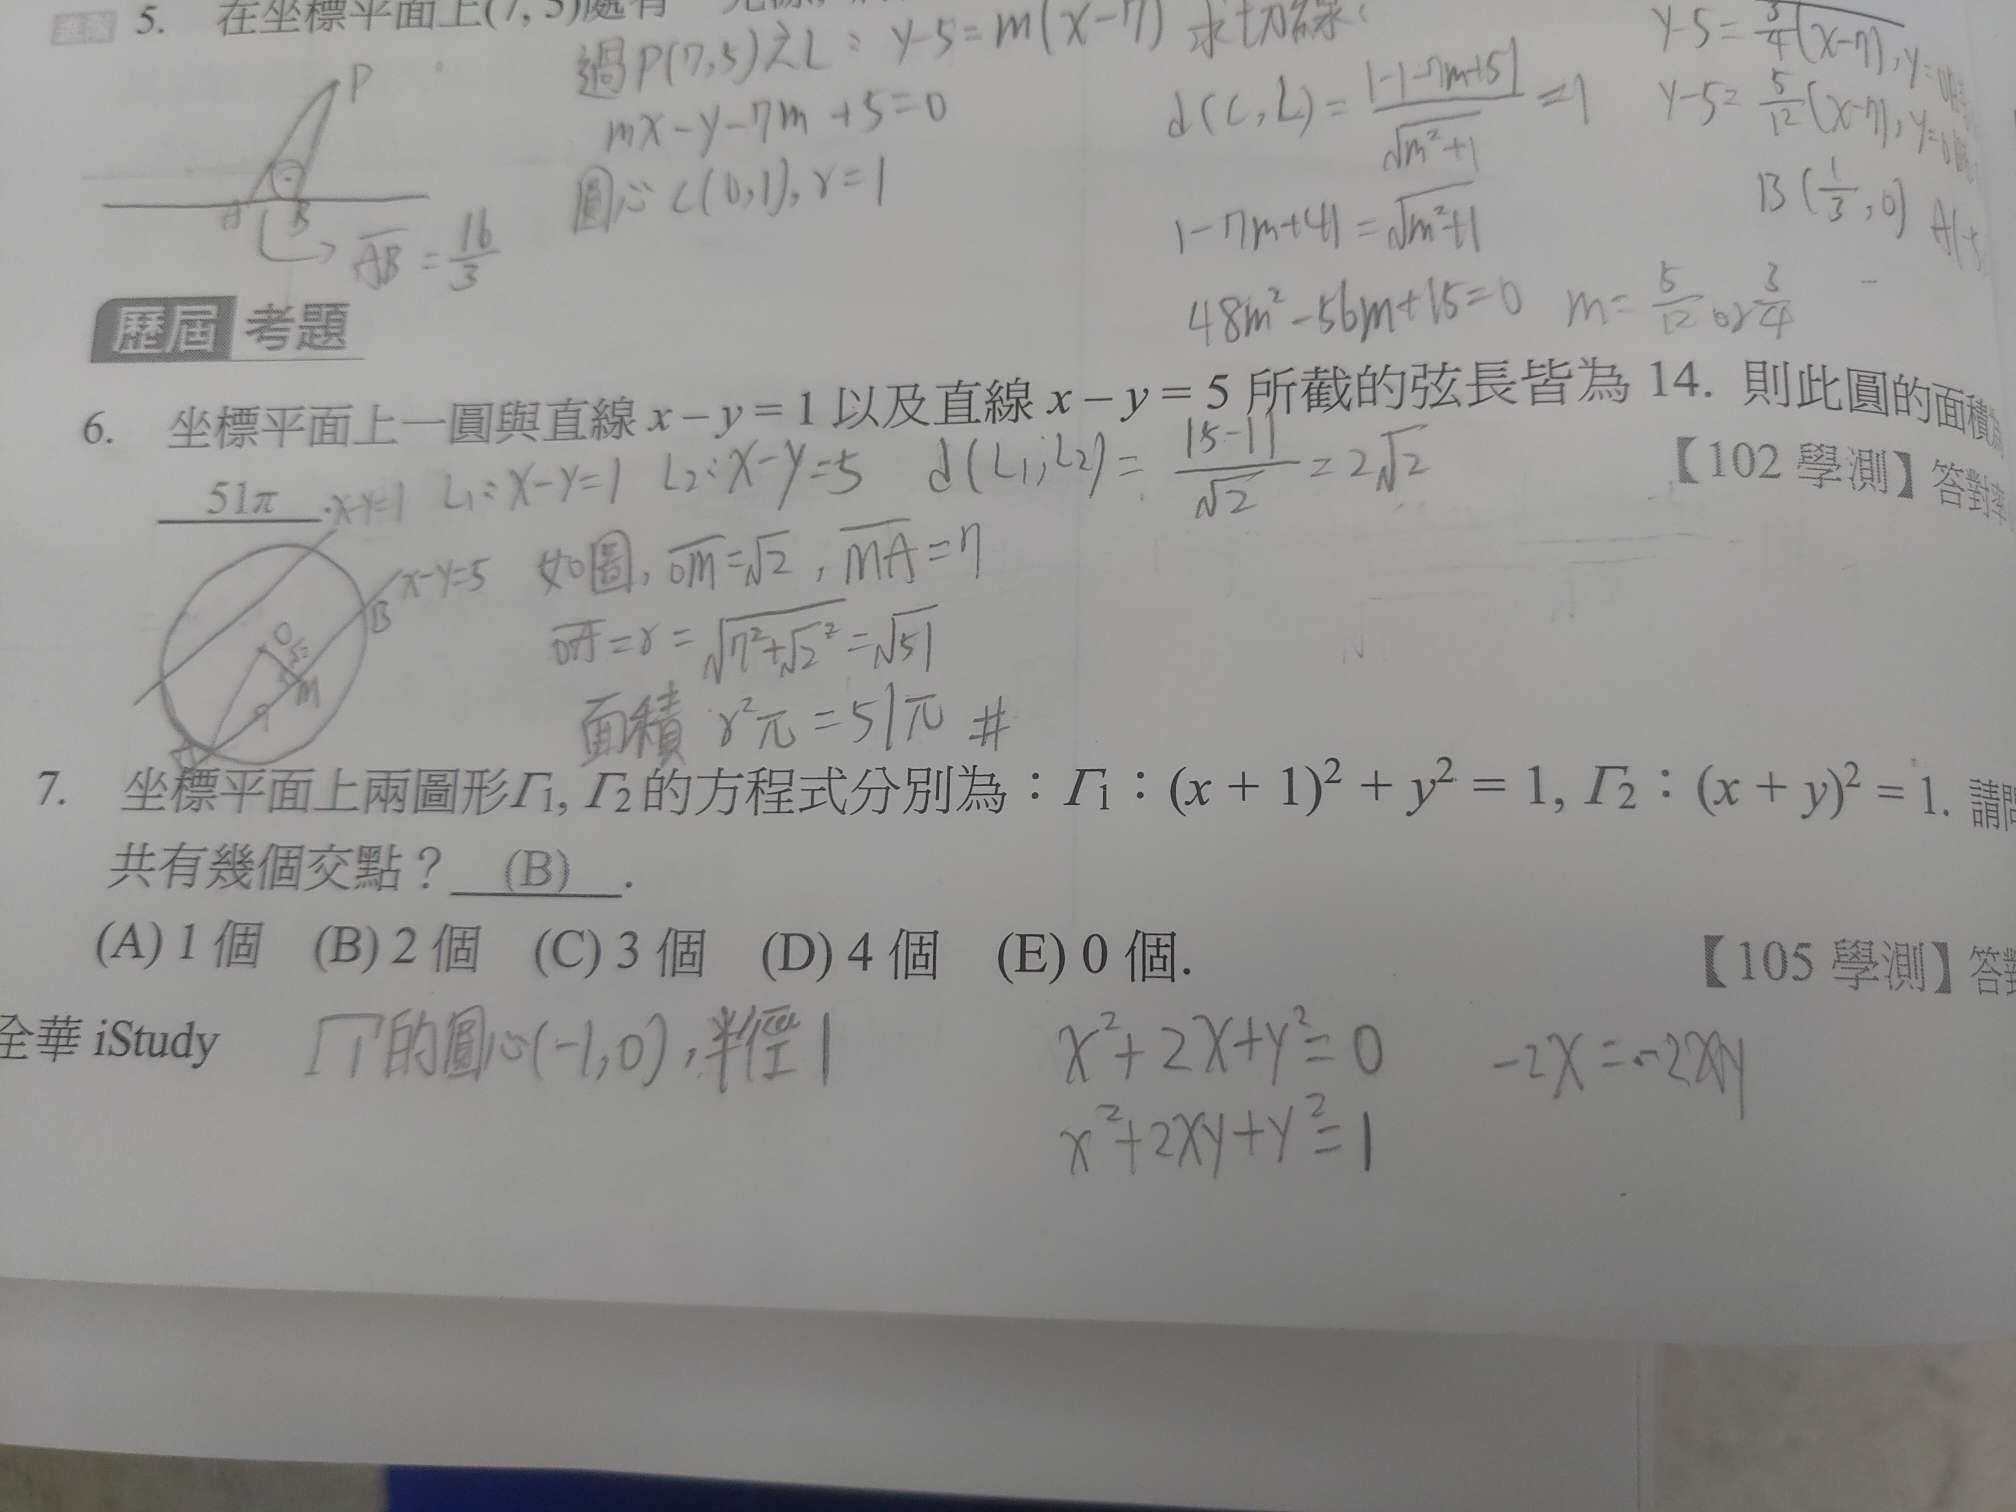 5. 在坐標平面上(7, 5)處有一光源,
過P(7,5)之L:y-5=m(x-7) 求切線:
mx-y-7m+5=0
圓心C(0,1), r=1
P
A B
AB = 16/3
d(C, L) = |-1-7m+5| / √m²+1 = 1
|-7m+4| = √m²+1
48m²-56m+15=0 m= 5/12 or 3/4
y-5= 3/4 (x-7), y=0
y-5= 5/12 (x-7), y=0
B (1/3, 0) A(-5
歷屆 考題
6. 坐標平面上一圓與直線 x – y = 1 以及直線 x – y = 5 所截的弦長皆為 14. 則此圓的面積為
51π .
【102 學測】答對率
L₁: x-y=1 L₂: x-y=5 d(L₁, L₂) = |5-1| / √2 = 2√2
x-y=1
x-y=5
B
O
√2
M
7
A
如圖, OM=√2, MA=7
OA=r=√7²+√2² =√51
面積 r²π=51π #
7. 坐標平面上兩圖形Γ1, Γ2的方程式分別為:Γ1:(x + 1)² + y² = 1, Γ2:(x + y)² = 1. 請問
共有幾個交點? (B) .
(A) 1 個 (B) 2 個 (C) 3 個 (D) 4 個 (E) 0 個.
【105 學測】答對
全華 iStudy
Γ1的圓心(-1,0), 半徑1
x²+2x+y²=0
x²+2xy+y²=1
-2x=-2xy